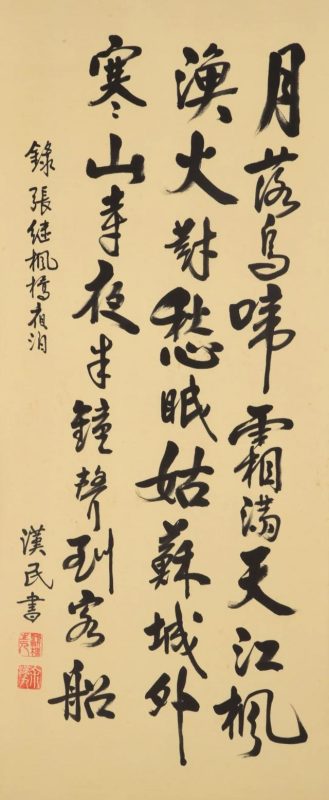 月落烏啼霜滿天江楓
漁火對愁眠姑蘇城外
寒山寺夜半鐘聲到客船
錄張继楓橋夜泊
漢民書